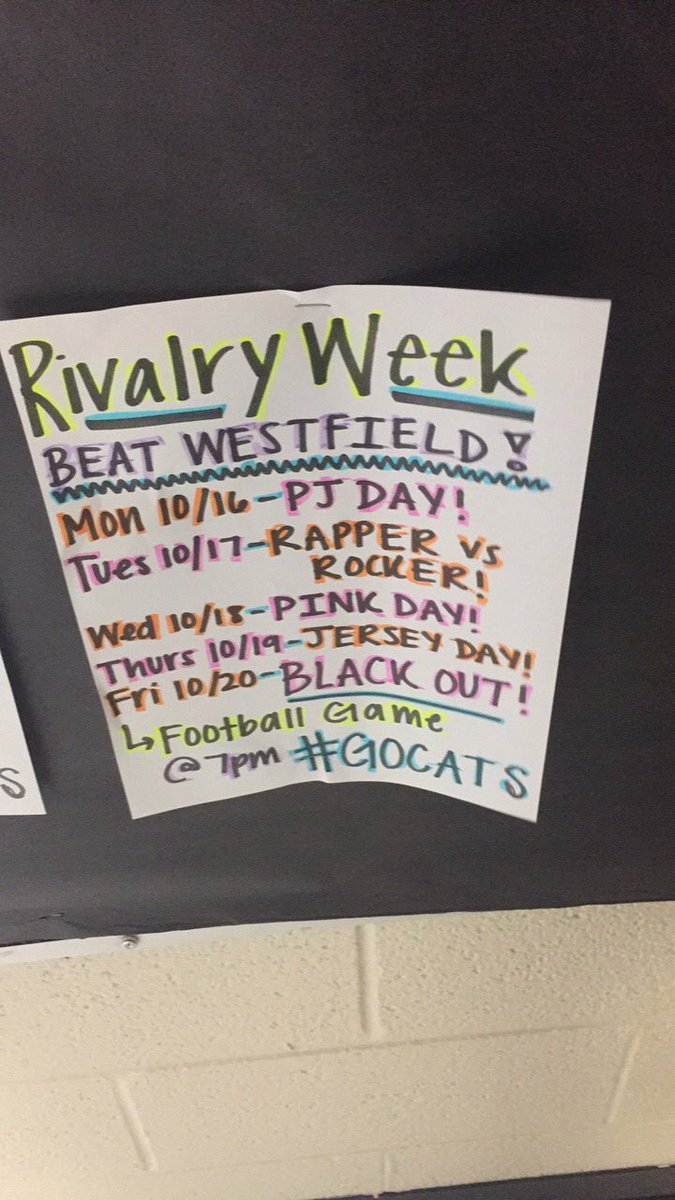 Rivalry Week
BEAT WESTFIELD!
Mon 10/16-PJ DAY!
Tues 10/17-RAPPER VS
ROCKER!
Wed 10/18-PINK DAY!
Thurs 10/19-JERSEY DAY!
Fri 10/20-BLACK OUT!
↳Football Game
@7pm #GOCATS
S